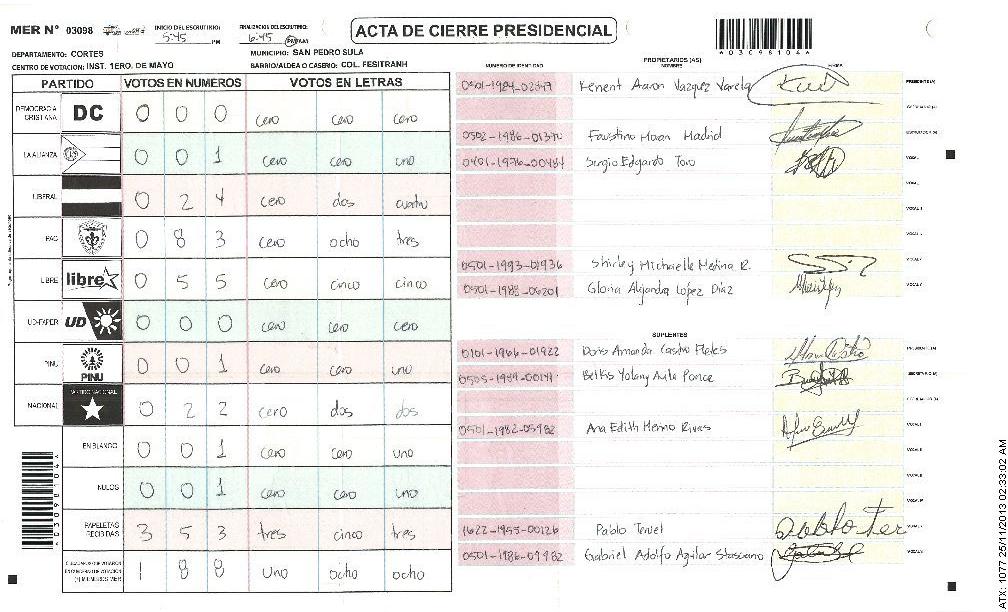 MER Nº 03098
INICIO DEL ESCRUTINIO: 5:45 PM
FINALIZACION DEL ESCRUTINIO: 6:45
ACTA DE CIERRE PRESIDENCIAL
*03098104*
DEPARTAMENTO: CORTES
MUNICIPIO: SAN PEDRO SULA
CENTRO DE VOTACION: INST. 1ERO. DE MAYO
BARRIO/ALDEA O CASERIO: COL. FESITRANH
PARTIDO VOTOS EN NUMEROS VOTOS EN LETRAS
DEMOCRACIA CRISTIANA DC 0 0 0 cero cero cero
LA ALIANZA 0 0 1 cero cero uno
LIBERAL 0 2 4 cero dos cuatro
PAC 0 8 3 cero ocho tres
LIBRE libre 0 5 5 cero cinco cinco
UD-FAPER UD 0 0 0 cero cero cero
PINU PINU 0 0 1 cero cero uno
NACIONAL PARTIDO NACIONAL 0 2 2 cero dos dos
EN BLANCO 0 0 1 cero cero uno
NULOS 0 0 1 cero cero uno
PAPELETAS RECIBIDAS 3 5 3 tres cinco tres
1 8 8 uno ocho ocho
NUMERO DE IDENTIDAD
PROPIETARIOS (AS)
NOMBRE
FIRMA
Kenent Aaron Vazquez Varela PRESIDENTE(A)
Faustino Madrid
Sergio Edgardo Toro
0501-1993-01936 Shirley Michaelle Medina R.
0501-1988-06201 Gloria Alejandra Lopez Díaz
SUPLENTES
0101-1966-01922 Doris Amanda Castro
Belkis Yolany Avila Ponce
0501-1982-05982 Ana Edith Rivas
1622-1955-00126 Pablo
Gabriel Adolfo Aguilar
ATX: 1077 25/11/2013 02:33:02 AM